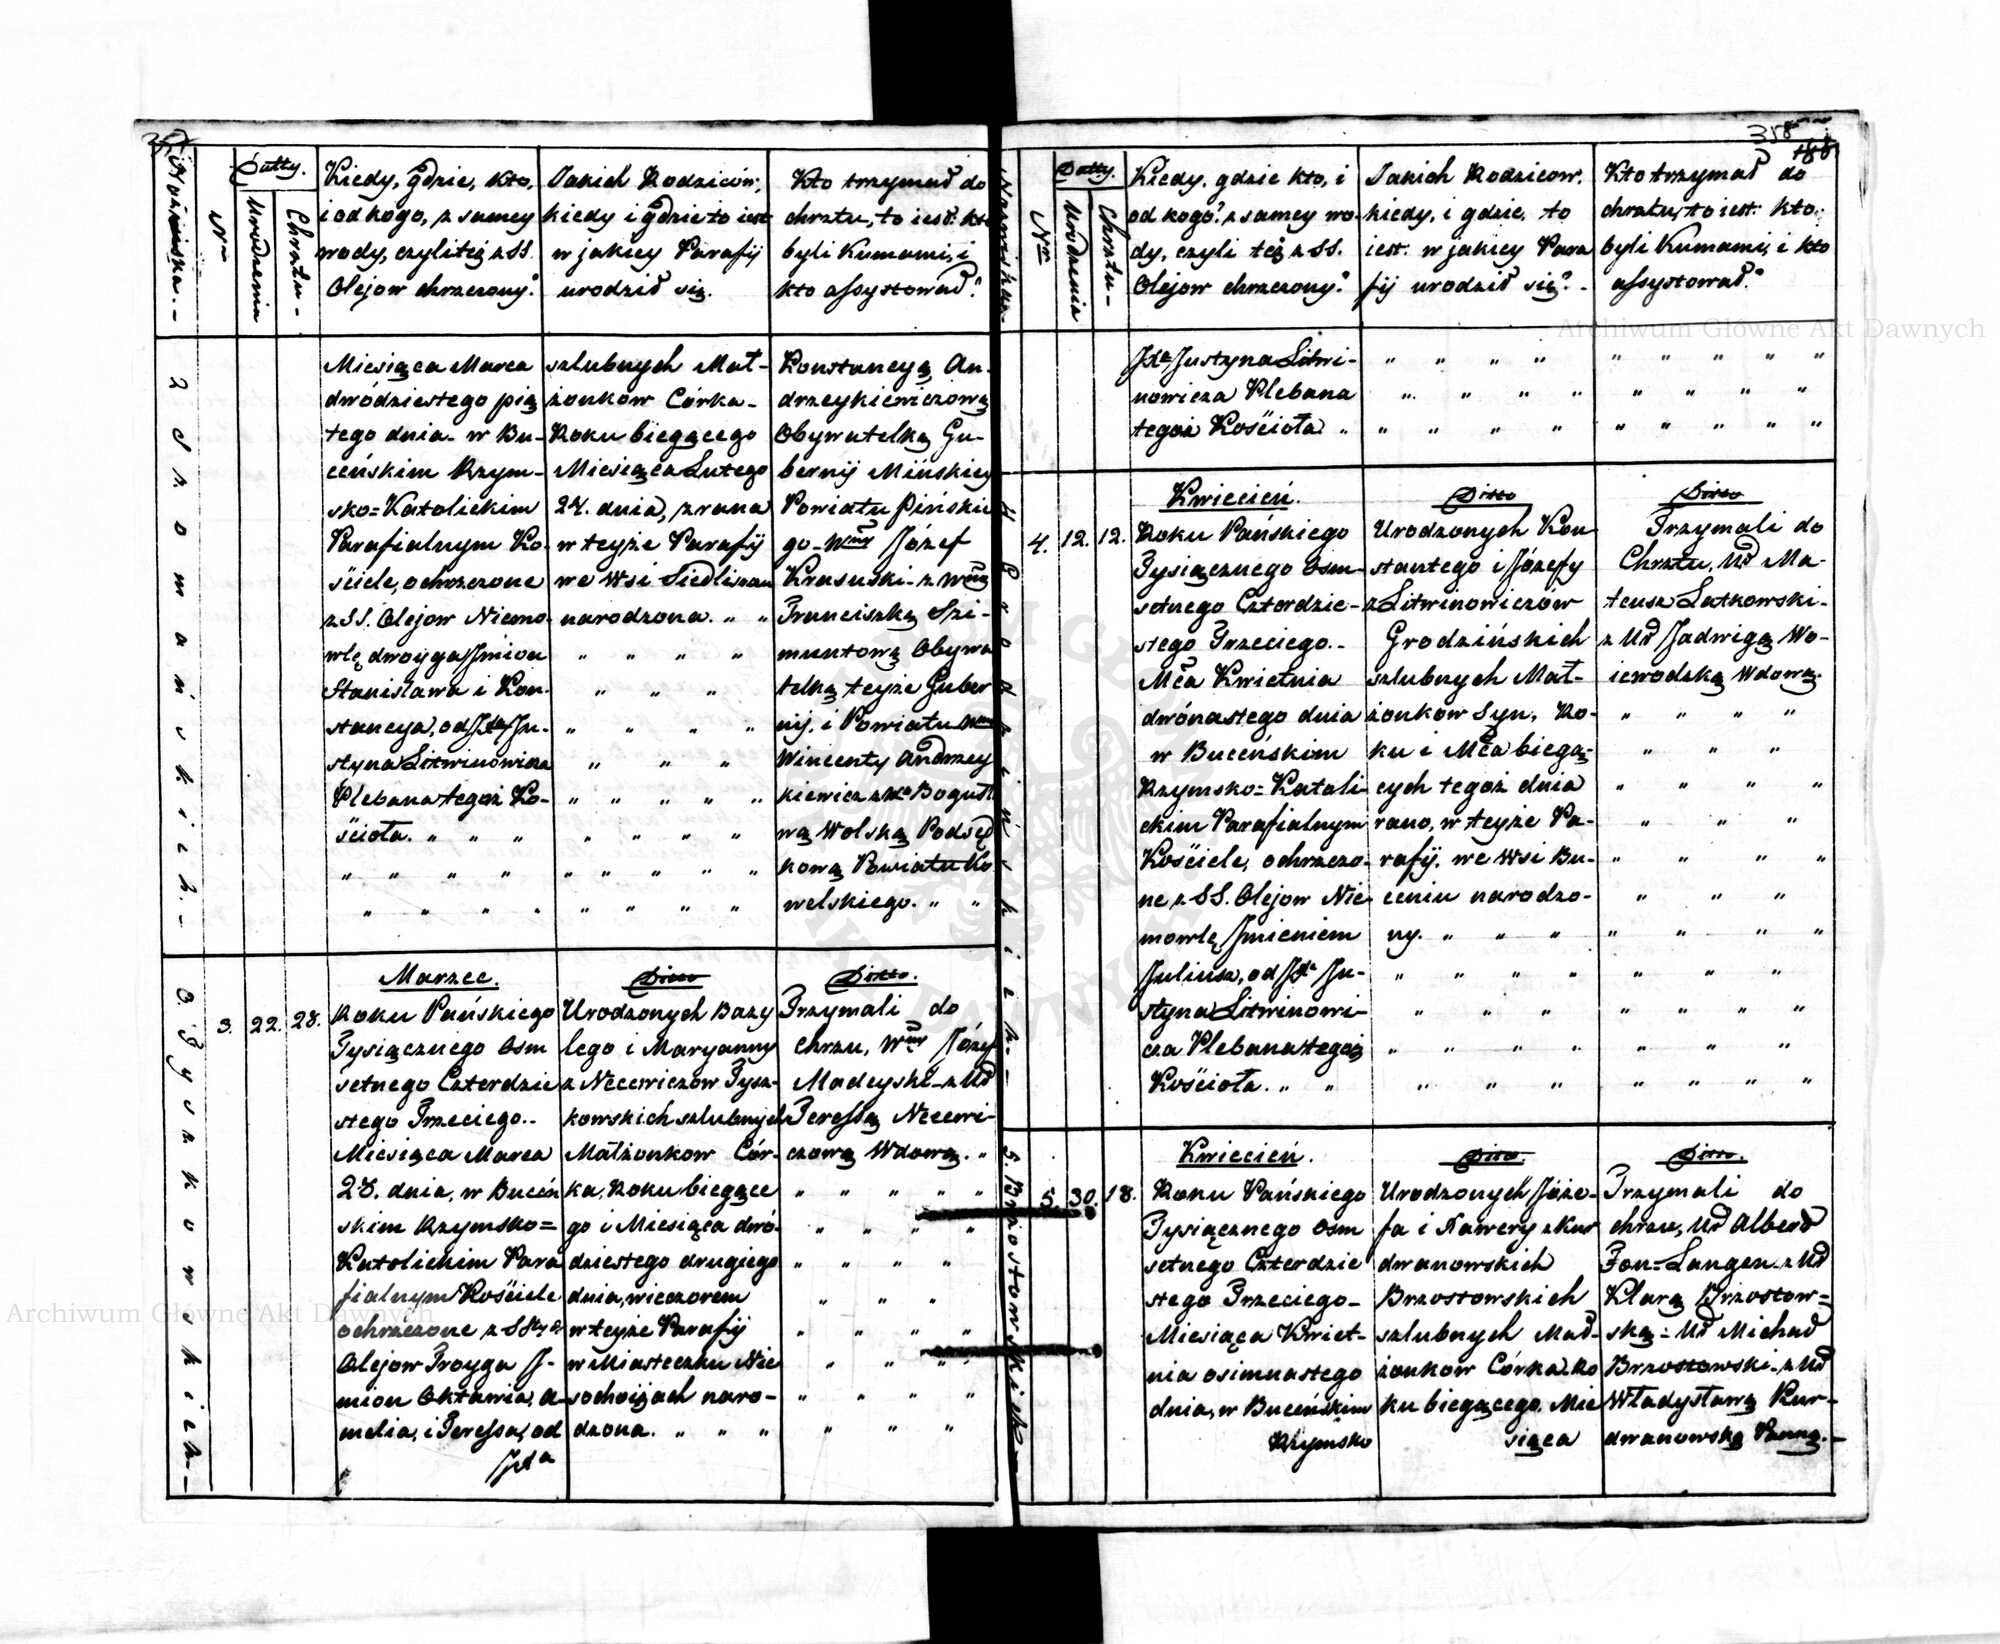 357
Nazwiska.
Nr
Datty.
Urodzenia
Chrztu
Kiedy, gdzie, kto,
i od kogo, z samey
wody, czyli też z SS.
Olejow chrzczony?
Jakich Rodziców,
kiedy i gdzie to iest
w jakiey Parafij
urodził się.
Kto trzymał do
chrztu, to iest: kto
byli Kumami, i
kto assystował?
2 Chromańskich.
Miesiąca Marca
dwódziestego pią
tego dnia w Bu-
ceńskim Rzym-
sko=Katolickim
Parafialnym Ko-
ściele, ochrzczone
z SS. Olejow Niemo-
wlę dwoyga Jmion
Stanisława i Kon-
stancya, od Jxa Ju-
styna Litwinowicza
Plebana tegoż Ko-
ścioła. " " "
szlubnych Mał-
żonkow Córka-
Roku biegącego
Miesiąca Lutego
24. dnia, z rana
w teyże Parafij
we Wsi Siedliszcu
narodzona. " "
Konstancyą An-
drzeykiewiczową
Obywatelką Gu-
bernij Mińskiey
Powiatu Pińskie
go - Wny Józef
Krasuski - z Wną
Franciszką Szi-
muntową Obywa
telką teyże Guber
nij, i Powiatu Wny
Wincenty Andrzey
kiewicz z Wą Bogusł
wą Wolską Podsęd
kową Powiatu Ko
welskiego. " "
3. Tyszkowskich.
3. 22. 28.
Marzec.
Roku Pańskiego
Tysiącznego Osm
setnego Czterdzie
stego Trzeciego..
Miesiąca Marca
28. dnia, w Buceń
skim Rzymsko=
Katolickim Para
fialnym Kościele
ochrzczone z SStych
Olejow Troyga J-
mion Oktawia, A-
melia, i Teressa, od
Jxa
Ditto
Urodzonych Bazy
lego i Maryanny
z Necewiczow Tysz-
kowskich szlubnych
Małżonkow Cór-
ka, Roku biegące
go i Miesiąca dwó-
dziestego drugiego
dnia, wieczorem
w teyże Parafij
w Miasteczku Nie
suchoiżach naro-
dzona. " " "
Ditto.
Trzymali do
chrzu, Wny Józef
Madeyski - z Ur
Teressą Necewi-
czową Wdową. "
358
188
Nazwiska.
Nr
Datty.
Urodzenia
Chrztu
Kiedy, gdzie kto, i
od kogo? z samey wo-
dy, czyli też z SS.
Olejow chrzczony?
Jakich Rodzicow,
kiedy, i gdzie, to
iest: w jakiey Para
fij urodził się?
Kto trzymał do
chrztu, to iest: kto
byli Kumami, i kto
assystował?
Jxa Justyna Litwi-
nowicza Plebana
tegoż Kościoła. "
4. Grodzińskich.
4. 12. 12.
Kwiecień.
Roku Pańskiego
Tysiącznego Osm-
setnego Czterdzie-
stego Trzeciego..
Mca Kwietnia
dwónastego dnia
w Buceńskim
Rzymsko=Katoli-
ckim Parafialnym
Kościele, ochrzczo-
ne z SS. Olejow Nie-
mowlę Jmieniem
Juliusz, od Jxa Ju-
styna Litwinowi-
cza Plebana tegoż
Kościoła. " "
Ditto
Urodzonych Kon
stantego i Józefy
z Litwinowiczów
Grodzińskich
szlubnych Mał-
żonkow Syn, Ro-
ku i Mca biegą-
cych tegoż dnia
rano, w teyże Pa-
rafij, we Wsi Bu-
ceniu narodzo-
ny. " " "
Ditto
Trzymali do
Chrztu, Ur Ma-
teusz Latkowski-
z Ur Jadwigą Wo-
iewodzką Wdową.
5. Brzostowskich
5. 30. 18.
Kwiecień.
Roku Pańskiego
Tysiącznego Osm
setnego Czterdzie
stego Trzeciego-
Miesiąca Kwiet-
nia osimnastego
dnia, w Buceńskim
Rzymsko
Ditto.
Urodzonych Józe-
fa i Xawery z Kur
dwanowskich
Brzostowskich
szlubnych Mał-
żonkow Córka, Ro
ku biegącego, Mie
siąca
Ditto.
Trzymali do
chrzu, Ur Alber
Fon=Langen z Ur
Klarą Brzostow=
ską = Ur Michał
Brzostowski - z Ur
Władysławą Kur-
dwanowską Panną.
Archiwum Główne Akt Dawnych
Archiwum Główne Akt Dawnych